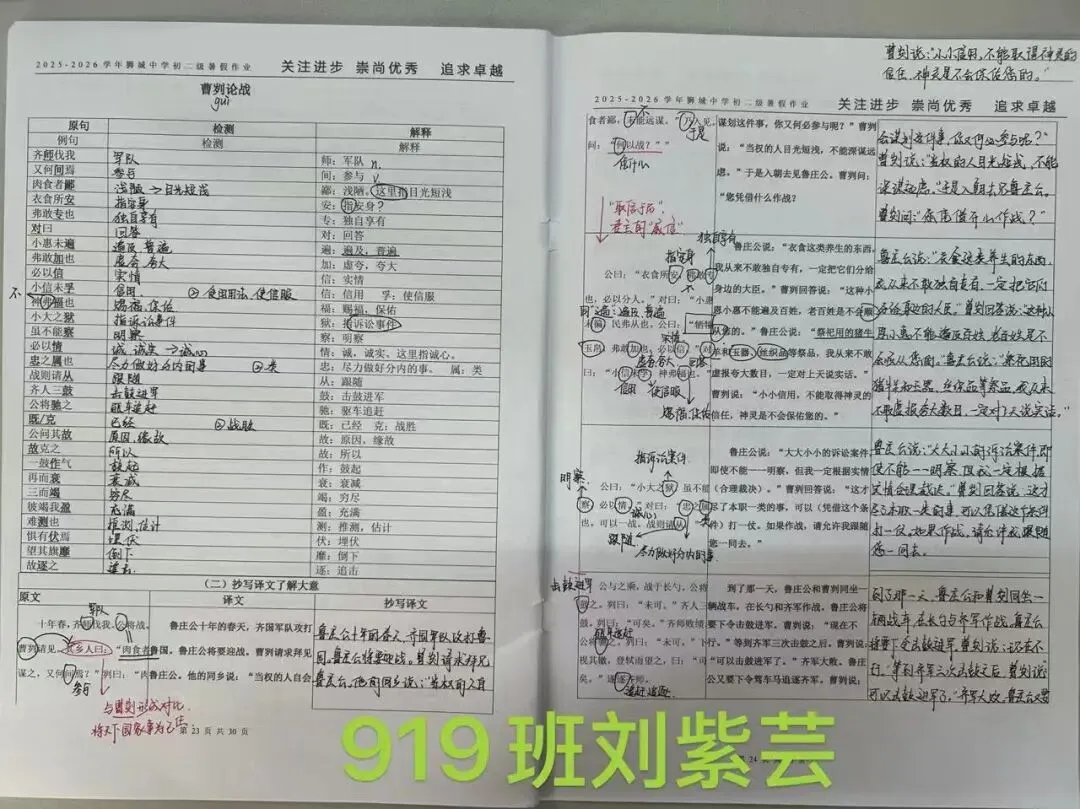 2025-2026学年狮城中学初二级暑假作业 关注进步 崇尚优秀 追求卓越
曹刿论战
guì
原句 检测 解释
例句 检测 解释
齐师伐我 军队 师：军队 n.
又何间焉 参与 间：参与 v
肉食者鄙 浅陋→目光短浅 鄙：浅陋。这里指目光短浅
衣食所安 指安身 安：指安身？
弗敢专也 独自享有 专：独自享有
对曰 回答 对：回答
小惠未遍 遍及,普遍 遍：遍及，普遍
弗敢加也 虚夸,夸大 加：虚夸，夸大
必以信 实情 信：实情
小信未孚 信用 ②使信服 信：信用 孚：使信服
不
神弗福也 赐福,保佑 福：赐福、保佑
小大之狱 指诉讼事件 狱：指诉讼事件
虽不能察 明察 察：明察
必以情 诚,诚实→诚心 情：诚，诚实。这里指诚心。
忠之属也 尽力做好分内的事 ②类 忠：尽力做好分内的事。 属：类
战则请从 跟随 从：跟随
齐人三鼓 击鼓进军 鼓：击鼓进军
公将驰之 驱车追赶 驰：驱车追赶
既/克 已经 ②战胜 既：已经 克：战胜
公问其故 原因,缘故 故：原因，缘故
故克之 所以 故：所以
一鼓作气 鼓起 作：鼓起
再而衰 衰减 衰：衰减
三而竭 穷尽 竭：穷尽
彼竭我盈 充满 盈：充满
难测也 推测,估计 测：推测，估计
惧有伏焉 埋伏 伏：埋伏
望其旗靡 倒下 靡：倒下
故逐之 追击 逐：追击
（二）抄写译文了解大意
原文 译文 抄写译文
军队
十年春，齐师伐我。公将战。 鲁庄公十年的春天，齐国军队攻打 鲁庄公十年的春天,齐国军队攻打鲁
曹刿请见。其乡人曰：“肉食者 鲁国。鲁庄公将要迎战。曹刿请求拜见 国。鲁庄公将要迎战。曹刿请求拜见
谋之，又何间焉？”刿曰：“肉 鲁庄公。他的同乡说：“当权的人自会 鲁庄公。他的同乡说：“当权的人自
参与
与曹刿形成对比
将天下国家事为己任
第 23 页 共 30 页
曹刿说：“小小信用,不能取得神灵的
信任,神灵是不会保佑您的。”
2025-2026学年狮城中学初二级暑假作业 关注进步 崇尚优秀 追求卓越
不
食者鄙，未能远谋。”乃入见。 谋划这件事，你又何必参与呢？”曹刿 会谋划这件事,你又何必参与呢？”
于是
问：“何以战？” 说：“当权的人目光短浅，不能深谋远 曹刿说：“当权的人目光短浅,不能
凭什么
虑。”于是入朝去见鲁庄公。曹刿问： 深谋远虑。”于是入朝去见鲁庄公。
“您凭借什么作战？” 曹刿问：“您凭借什么作战？”
“取信于民”
独自享有
指安身
鲁庄公说：“衣食这类养生的东西， 鲁庄公说：“衣食这类养生的东西,
公曰：“衣食所安，弗敢专 我从来不敢独自专有，一定把它们分给 我从来不敢独自专有,一定把它们
也，必以分人。”对曰：“小惠 身边的大臣。”曹刿回答说：“这种小 分给身边的大臣。”曹刿回答说：“这种小
同“遍”：遍及,普遍
未徧，民弗从也。”公曰：“牺牲 恩小惠不能遍及百姓，老百姓是不会顺 恩小惠不能遍及百姓,老百姓是不
从您的。”鲁庄公说：“祭祀用的猪牛 会顺从您的。”鲁庄公说：“祭祀用的
实情
玉帛，弗敢加也，必以信。”对 羊和玉器、丝织品等祭品，我从来不敢 猪牛羊和玉器、丝织品等祭品,我从来
虚夸夸大 回答
曰：“小信未孚，神弗福也。” 虚报夸大数目，一定对上天说实话。” 不敢虚报夸大数目,一定对上天说实话。”
信用 使信服
曹刿说：“小小信用，不能取得神灵的
赐福,保佑
信任，神灵是不会保佑您的。”
指诉讼案件
鲁庄公说：“大大小小的诉讼案件， 鲁庄公说：“大大小小的诉讼案件,即
明察
即使不能一一明察，但我一定根据实情 使不能一一明察,但我一定根据
公曰：“小大之狱，虽不能 （合理裁决）。”曹刿回答说：“这才 实情合理裁决。”曹刿回答说：“这才
察，必以情。”对曰：“忠之属 尽了本职一类的事，可以（凭借这个条 尽了本职一类的事,可以凭借这个条件
诚心 类
也。可以一战。战则请从。” 件）打一仗。如果作战，请允许我跟随 打一仗。如果作战,请允许我跟随
跟随
您一同去。” 您一同去。
尽力做好分内的事
击鼓进军
公与之乘，战于长勺。公将 到了那一天，鲁庄公和曹刿同坐一 到了那一天,鲁庄公和曹刿同坐一
鼓之。刿曰：“未可。”齐人三 辆战车，在长勺和齐军作战。鲁庄公将 辆战车,在长勺与齐军作战。鲁庄公
鼓。刿曰：“可矣。”齐师败绩。 要下令击鼓进军。曹刿说：“现在不 将要下令击鼓进军。曹刿说：“现在不
驱车追赶
公将驰之。刿曰：“未可。”下 行。”等到齐军三次击鼓之后。曹刿说： 行。”等到齐军三次击鼓之后。曹刿说：
视其辙，登轼而望之，曰：“可 “可以击鼓进军了。”齐军大败。鲁庄 “可以击鼓进军了。”齐军大败。鲁庄公又要
矣。”遂逐齐师。 公又要下令驾车马追逐齐军。曹刿说：
追赶追逐
919班刘紫芸